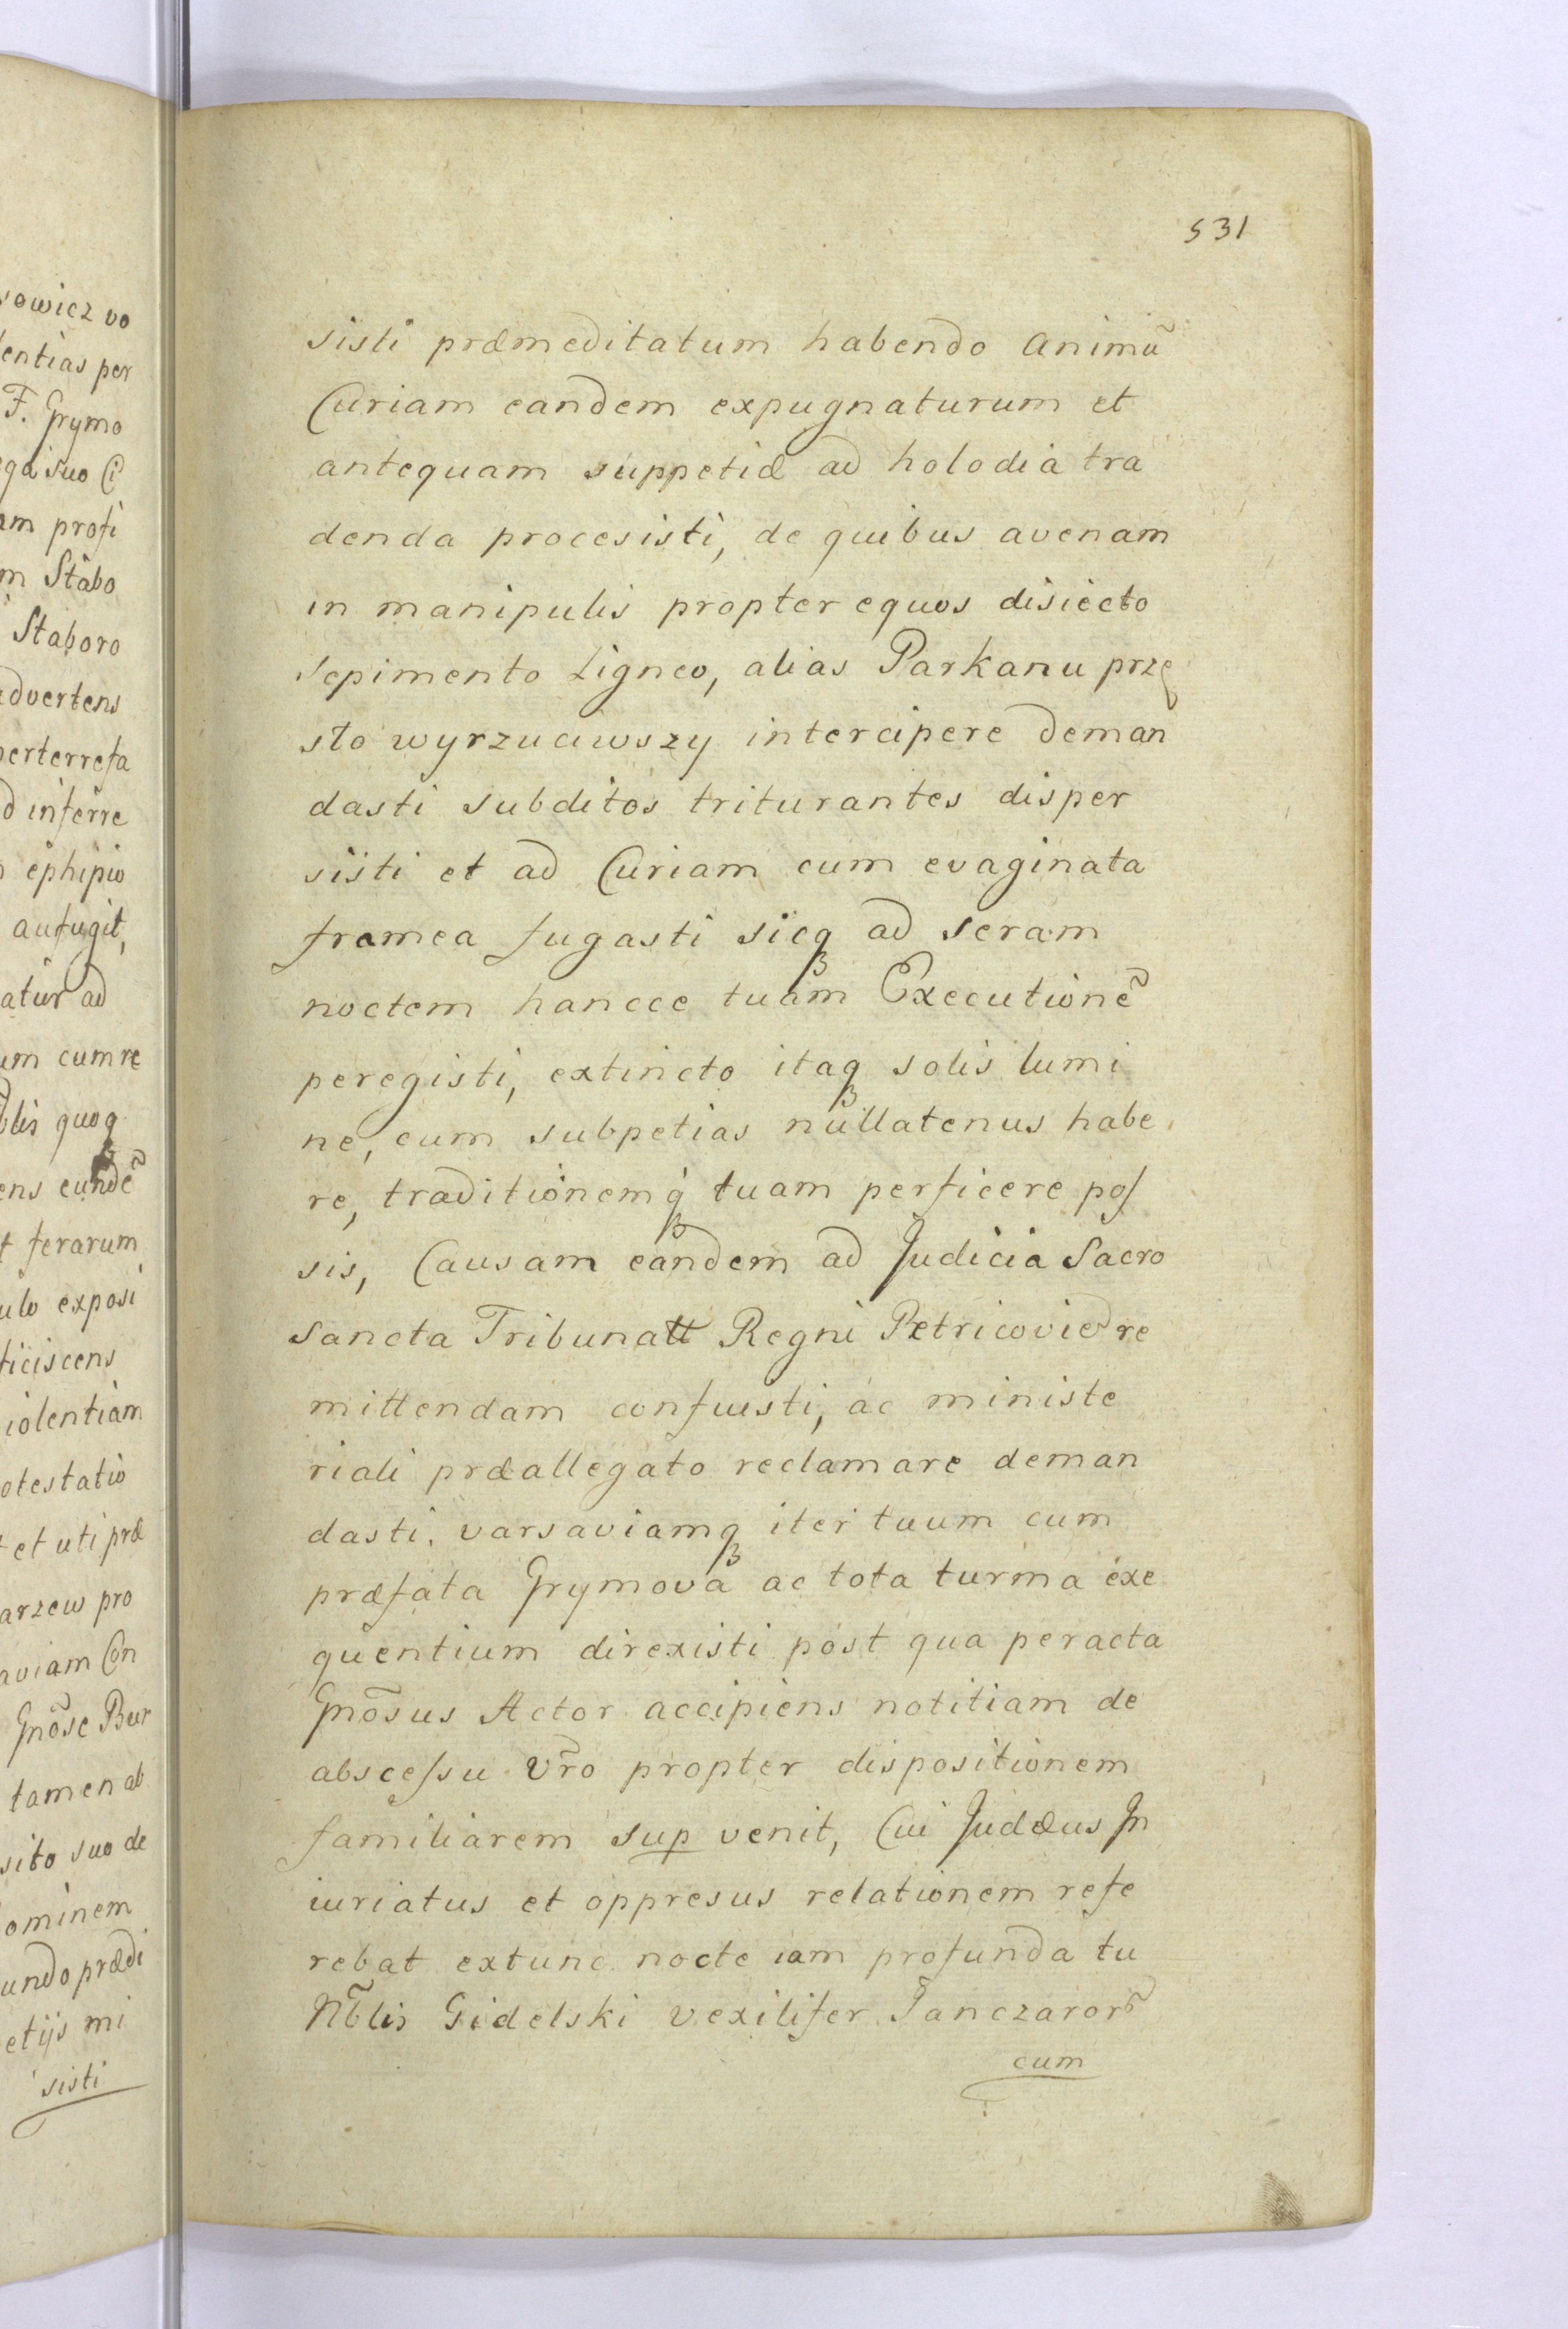 531
sisti præmeditatum habendo animũ
Curiam eandem expugnaturum et
antequam suppetiæ ad holodia tra
denda procesisti, de quibus avenam
in manipulis propter equos disiecto
sepimento Ligneo, alias Parkanu przę
sło wyrzuciwszy intercipere deman
dasti subditos triturantes disper
sisti et ad Curiam cum evaginata
framea fugasti sicq₃ ad seram
noctem hancce tuam Executionẽ
peregisti, extincto itaq₃ solis lumi
ne, cum subpetias nullatenus habe
re, traditionemq₃ tuam perficere pos
sis, Causam eandem ad Judicia Sacro
Sancta Tribunatt Regni Petricoviẽ re
mittendam confuisti, ac ministe
riali præallegato reclamare deman
dasti. varsaviamq₃ iter tuum cum
præfata Grymova ac tota turma exe
quentium direxisti post qua peracta
Gnõsus Actor accipiens notitiam de
abscessu vr̃o propter dispositionem
familiarem sup venit, Cui Judæus In
iuriatus et oppresus relationem refe
rebat extunc nocte iam profunda tu
Nb̃lis Gidelski vexilifer Janczaror̃
cum
sowicz vo
lentias per
F. Grymo
ega suo Ci
am profi
m Stabo
Staboro
advertens
perterrefa
d inferre
ephipio
aufugit,
atur ad
um cum re
blis quoq₃
ens eundẽ
t ferarum
ulo exposi
ficiscens
iolentiam
otestatio
et uti præ
arzew pro
aviam Con
Gnõse Bur
tamen ab
sito suo de
ominem
undo prædi
etijs mi
sisti